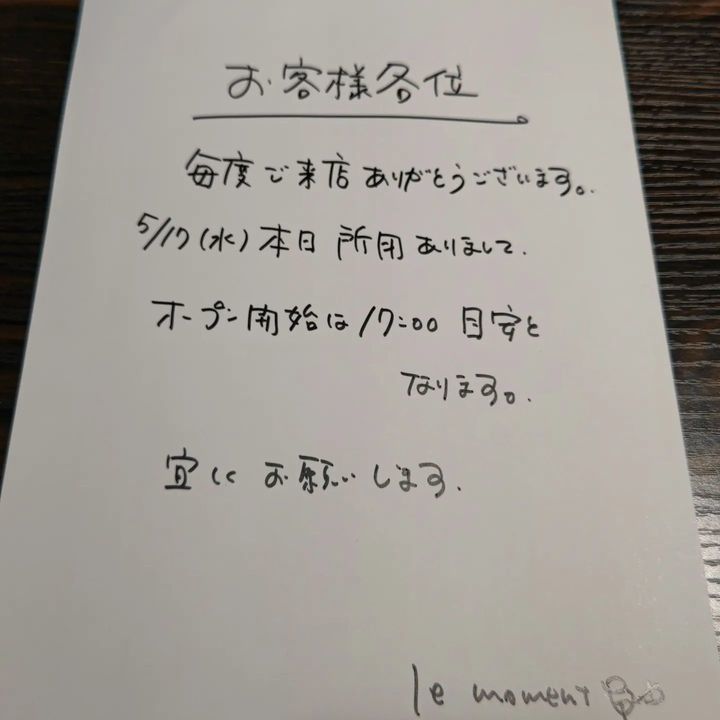 お客様各位
毎度ご来店ありがとうございます。
5/17(水)本日所用ありまして、
オープン開始は17:00目安と
なります。
宜しくお願いします。
le moment